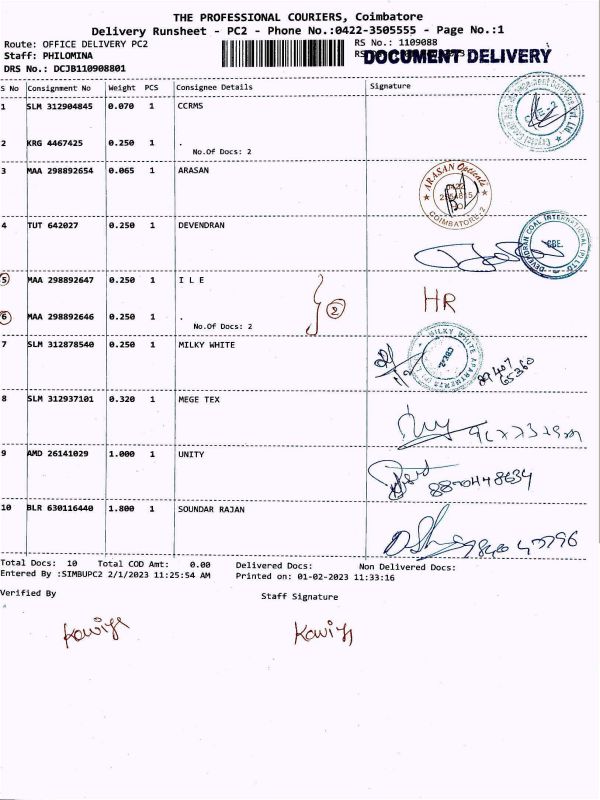 THE PROFESSIONAL COURIERS, Coimbatore
Delivery Runsheet - PC2 - Phone No.:0422-3505555 - Page No.:1
Route: OFFICE DELIVERY PC2
RS No.: 1109088
Staff: PHILOMINA
DOCUMENT DELIVERY
DRS No.: DCJB110908801
S No Consignment No Weight PCS Consignee Details Signature
1 SLM 312904845 0.070 1 CCRMS
2 KRG 4467425 0.250 1 .
No.Of Docs: 2
3 MAA 298892654 0.065 1 ARASAN
ARASAN Opticals
COIMBATORE-2
4 TUT 642027 0.250 1 DEVENDRAN
DEVENDRAN COAL INTERNATIONAL (P) LTD
CBE.
5 MAA 298892647 0.250 1 I L E
2
HR
6 MAA 298892646 0.250 1 .
No.Of Docs: 2
7 SLM 312878540 0.250 1 MILKY WHITE
MILKY WHITE APARMENTS
CBE-2
89407
65360
8 SLM 312937101 0.320 1 MEGE TEX
9 AMD 26141029 1.000 1 UNITY
8870448634
10 BLR 630116440 1.800 1 SOUNDAR RAJAN
Total Docs: 10 Total COD Amt: 0.00 Delivered Docs: Non Delivered Docs:
Entered By :SIMBUPC2 2/1/2023 11:25:54 AM Printed on: 01-02-2023 11:33:16
Verified By
Staff Signature